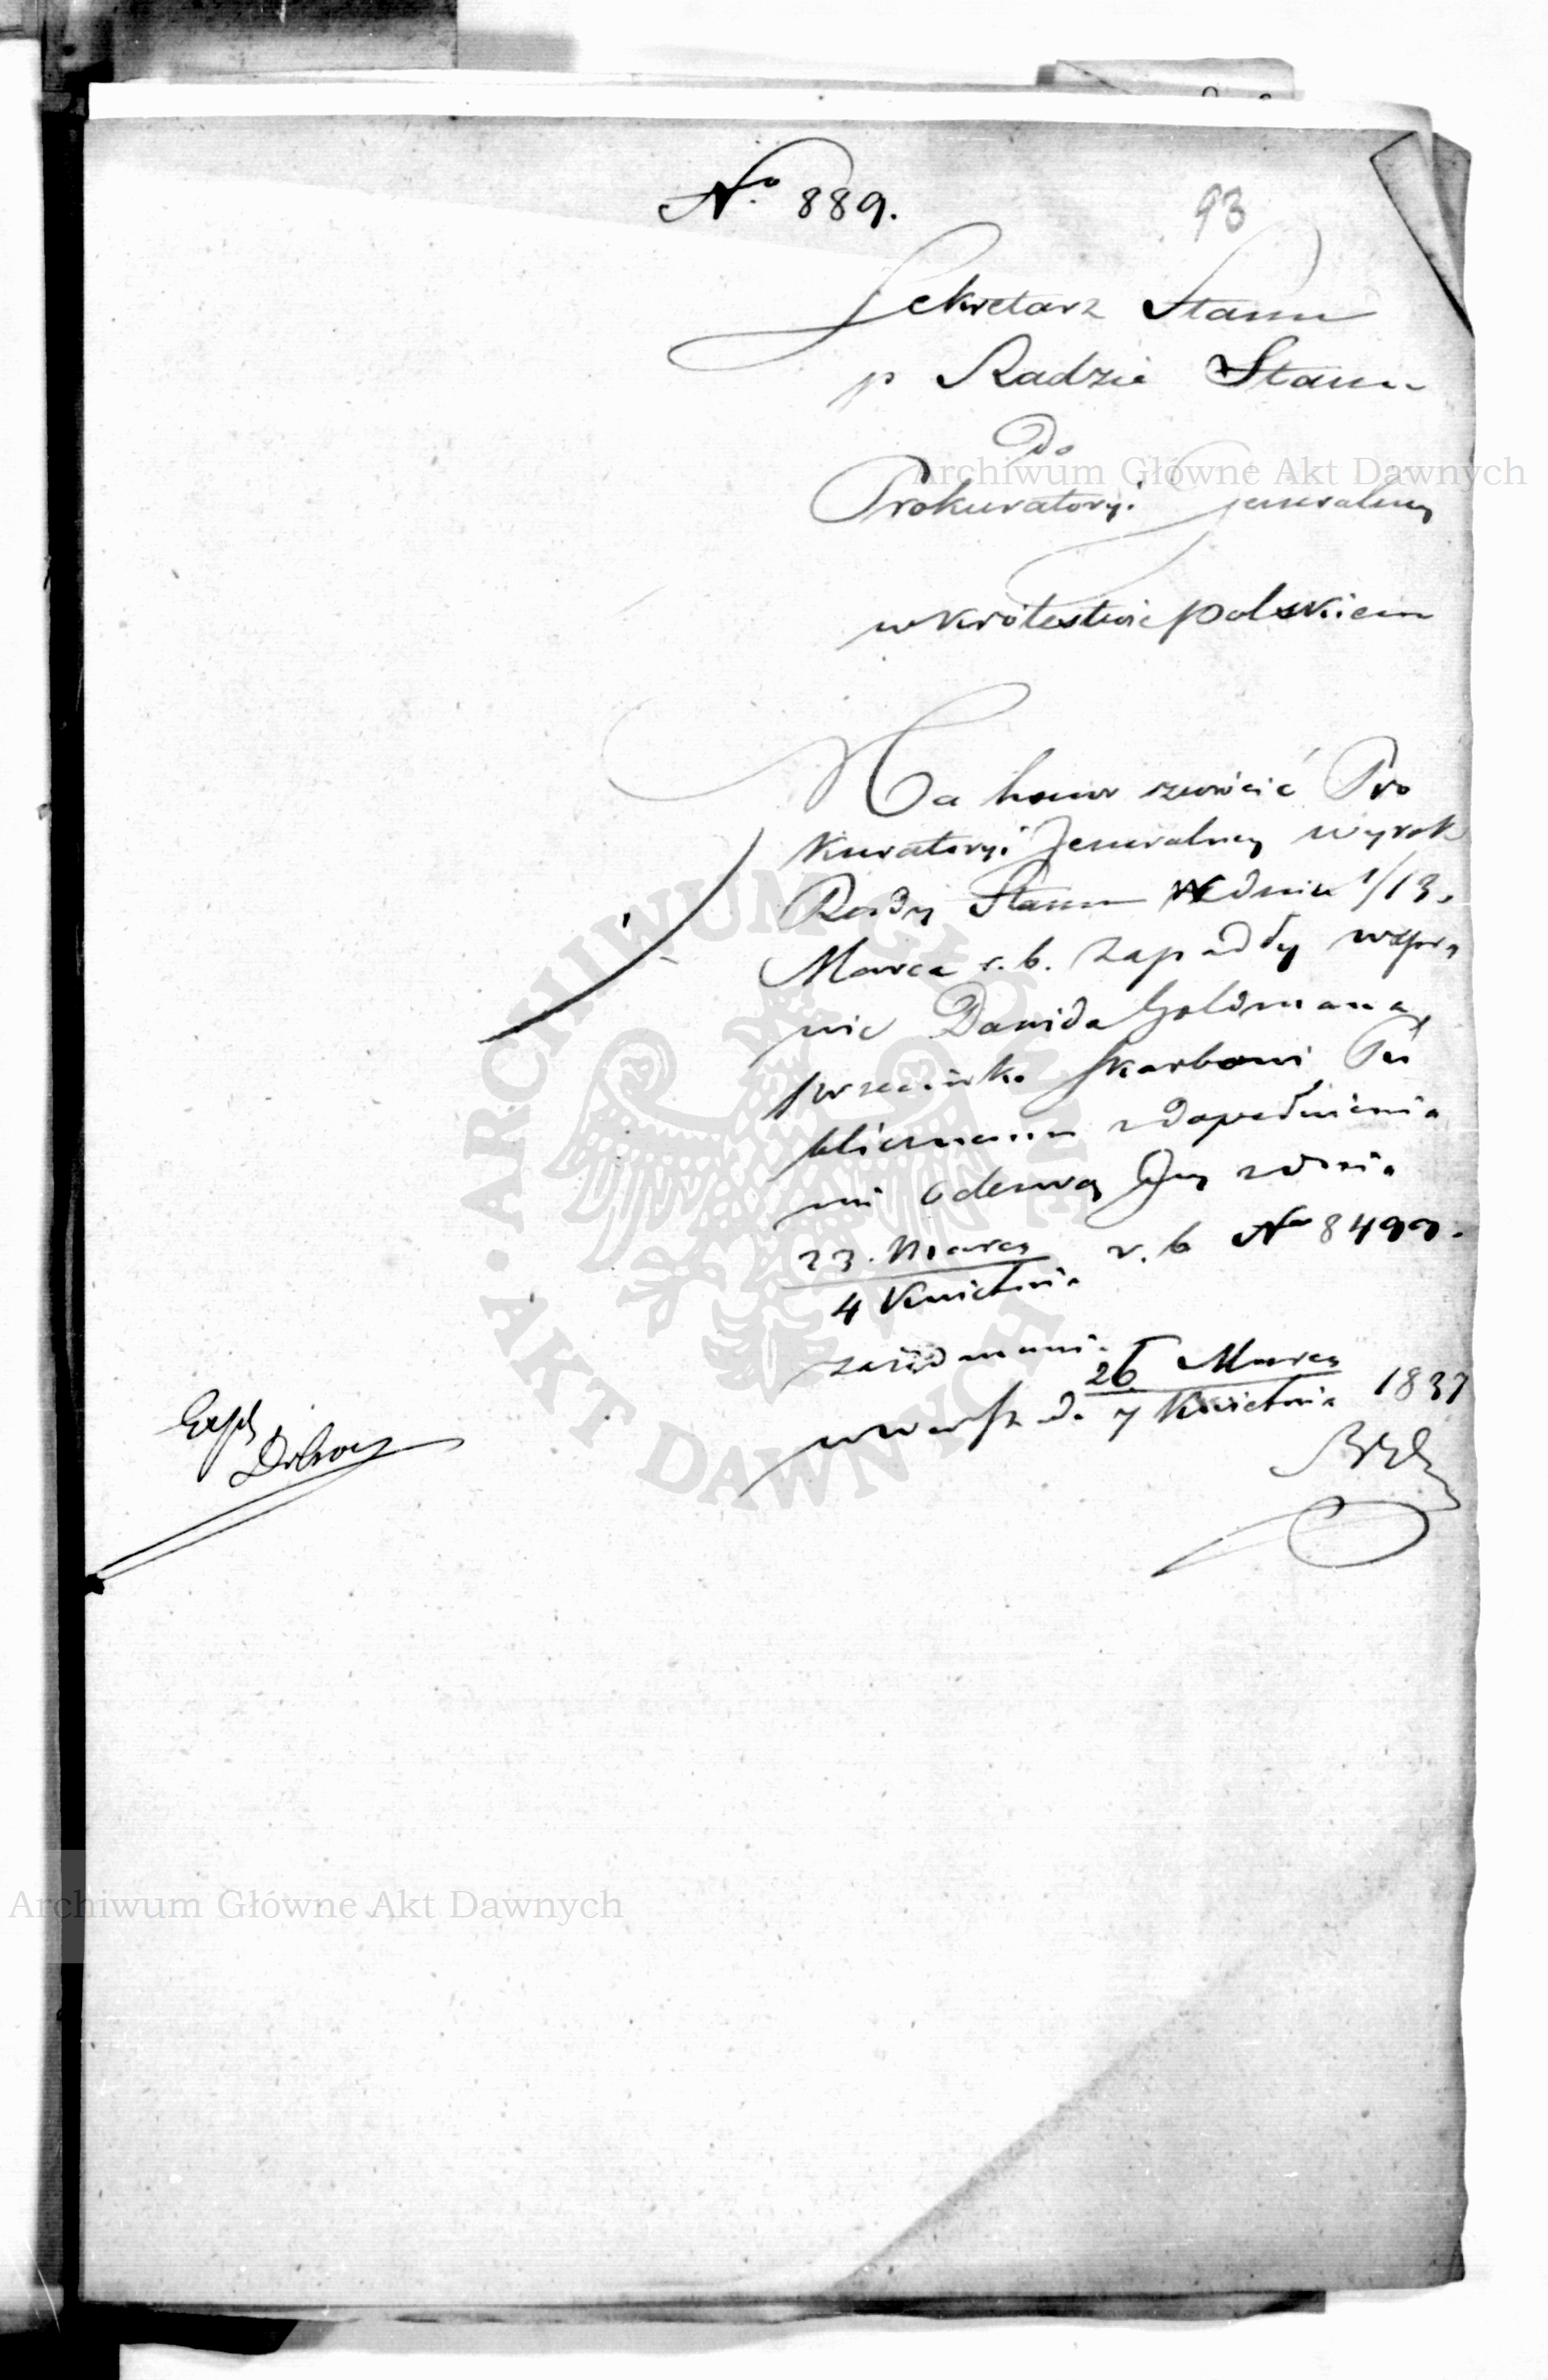 No 889.
93
Sekretarz Stanu
p Radzie Stanu
Do
Prokuratoryi Jeneralney
w Królestwie polskiem
Ma honor zwrócić Pro
kuratoryi Jeneralney wyrok
Rady Stanu w dniu 1/13.
Marca r. b. zapadły wspra
wie Dawida Goldmana
przeciwko Skarbowi Pu
blicznemu zdopełnienia
mi odezwą Jey zdnia
23. Marca
4 Kwietnia r. b No
żądanemi.
w Warsz d. 26 Marca
7 Kwietnia 1837
Exp
Archiwum Główne Akt Dawnych
ARCHIWUM GŁÓWNE AKT DAWNYCH
Archiwum Główne Akt Dawnych